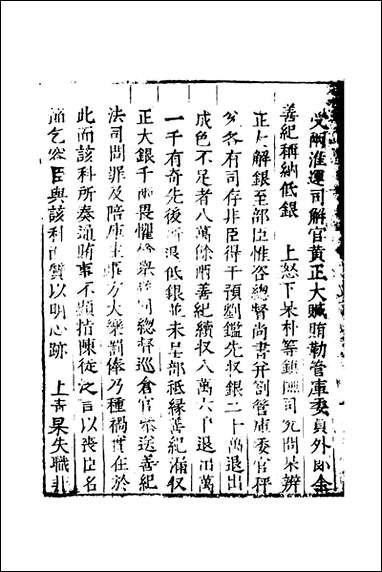 受兩淮運司解官黃正大贓賄勒管庫委員外郎金
善紀稱納低銀　上怒下杲朴等鎮撫司究問杲辨
正大解銀至部臣惟咨總督尚書弁劄管庫委官秤
兌各有司存非臣得干預劉鑑先収銀二十萬退出
成色不足者八萬餘兩善紀續収八萬六百退四萬
一千有奇先後所退低銀並未呈部祗緣善紀滿収
正大銀千兩畏懼舉並同總督巡倉官參送善紀
法司問罪及陪庫主事方大樂罰俸乃種禍實在於
此而該科所奏通賄事不顯指陳從之言以喪臣名
節乞容臣與該科面質以明心跡　上責杲失職非